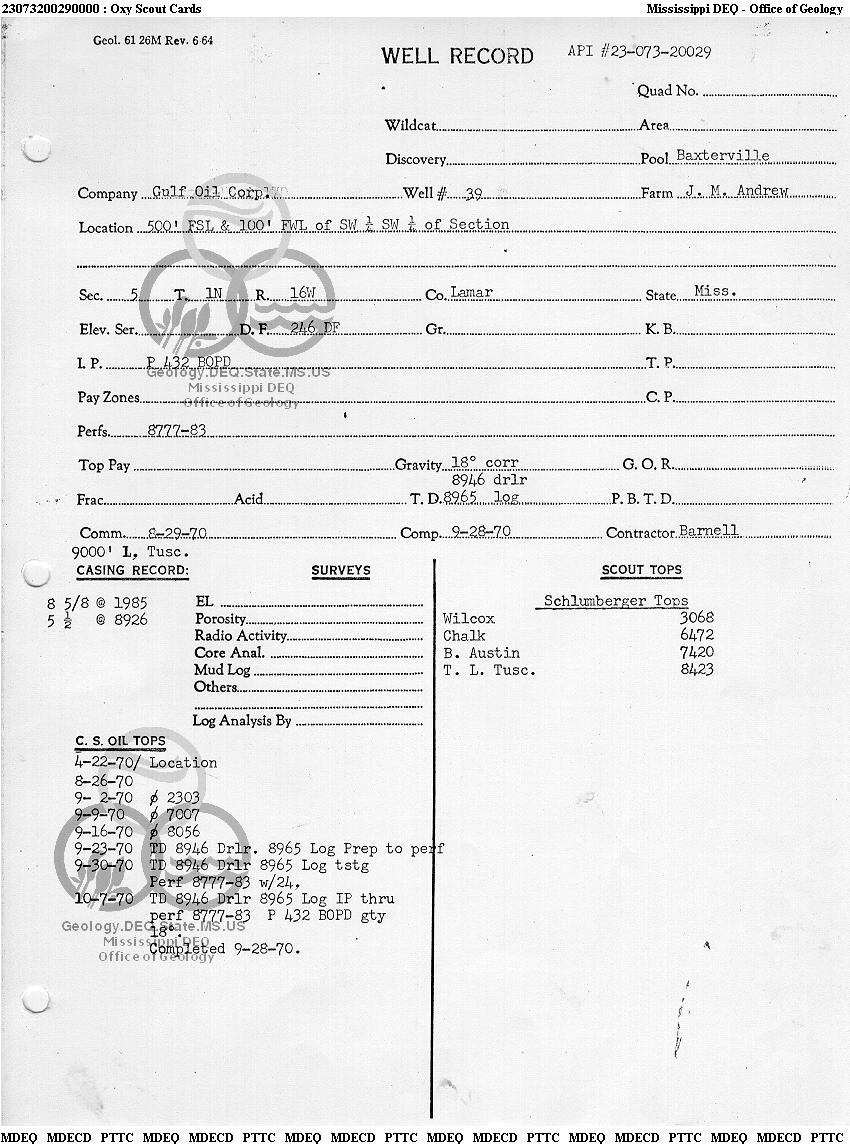 23073200290000 : Oxy Scout Cards Mississippi DEQ - Office of Geology
Geol. 61 26M Rev. 6-64
WELL RECORD API #23-073-20029
Quad No.
Wildcat Area
Discovery Pool Baxterville
Company Gulf Oil Corp. Well # 39 Farm J. M. Andrew
Location 500' FSL & 100' FWL of SW ¼ SW ¼ of Section
Sec. 5 T. 1N R. 16W Co. Lamar State Miss.
Elev. Ser. D. F. 246 DF Gr. K. B.
I. P. P 432 BOPD T. P.
Geology.DEQ.State.MS.US
Mississippi DEQ
Pay Zones C. P.
Office of Geology
Perfs. 8777-83
Top Pay Gravity 18° corr G. O. R.
8946 drlr
Frac. Acid T. D. 8965 log P. B. T. D.
Comm. 8-29-70 Comp. 9-28-70 Contractor Barnell
9000' L, Tusc.
CASING RECORD: SURVEYS SCOUT TOPS
8 5/8 @ 1985 EL Schlumberger Tops
5 ½ @ 8926 Porosity Wilcox 3068
Radio Activity Chalk 6472
Core Anal. B. Austin 7420
Mud Log T. L. Tusc. 8423
Others
Log Analysis By
C. S. OIL TOPS
4-22-70/ Location
8-26-70
9- 2-70 ∅ 2303
9-9-70 ∅ 7007
9-16-70 ∅ 8056
9-23-70 TD 8946 Drlr. 8965 Log Prep to perf
9-30-70 TD 8946 Drlr 8965 Log tstg
Perf 8777-83 w/24,
10-7-70 TD 8946 Drlr 8965 Log IP thru
perf 8777-83 P 432 BOPD gty
Geology.DEQ.State.MS.US
18°.
Mississippi DEQ
Completed 9-28-70.
Office of Geology
MDEQ MDECD PTTC MDEQ MDECD PTTC MDEQ MDECD PTTC MDEQ MDECD PTTC MDEQ MDECD PTTC MDEQ MDECD PTTC